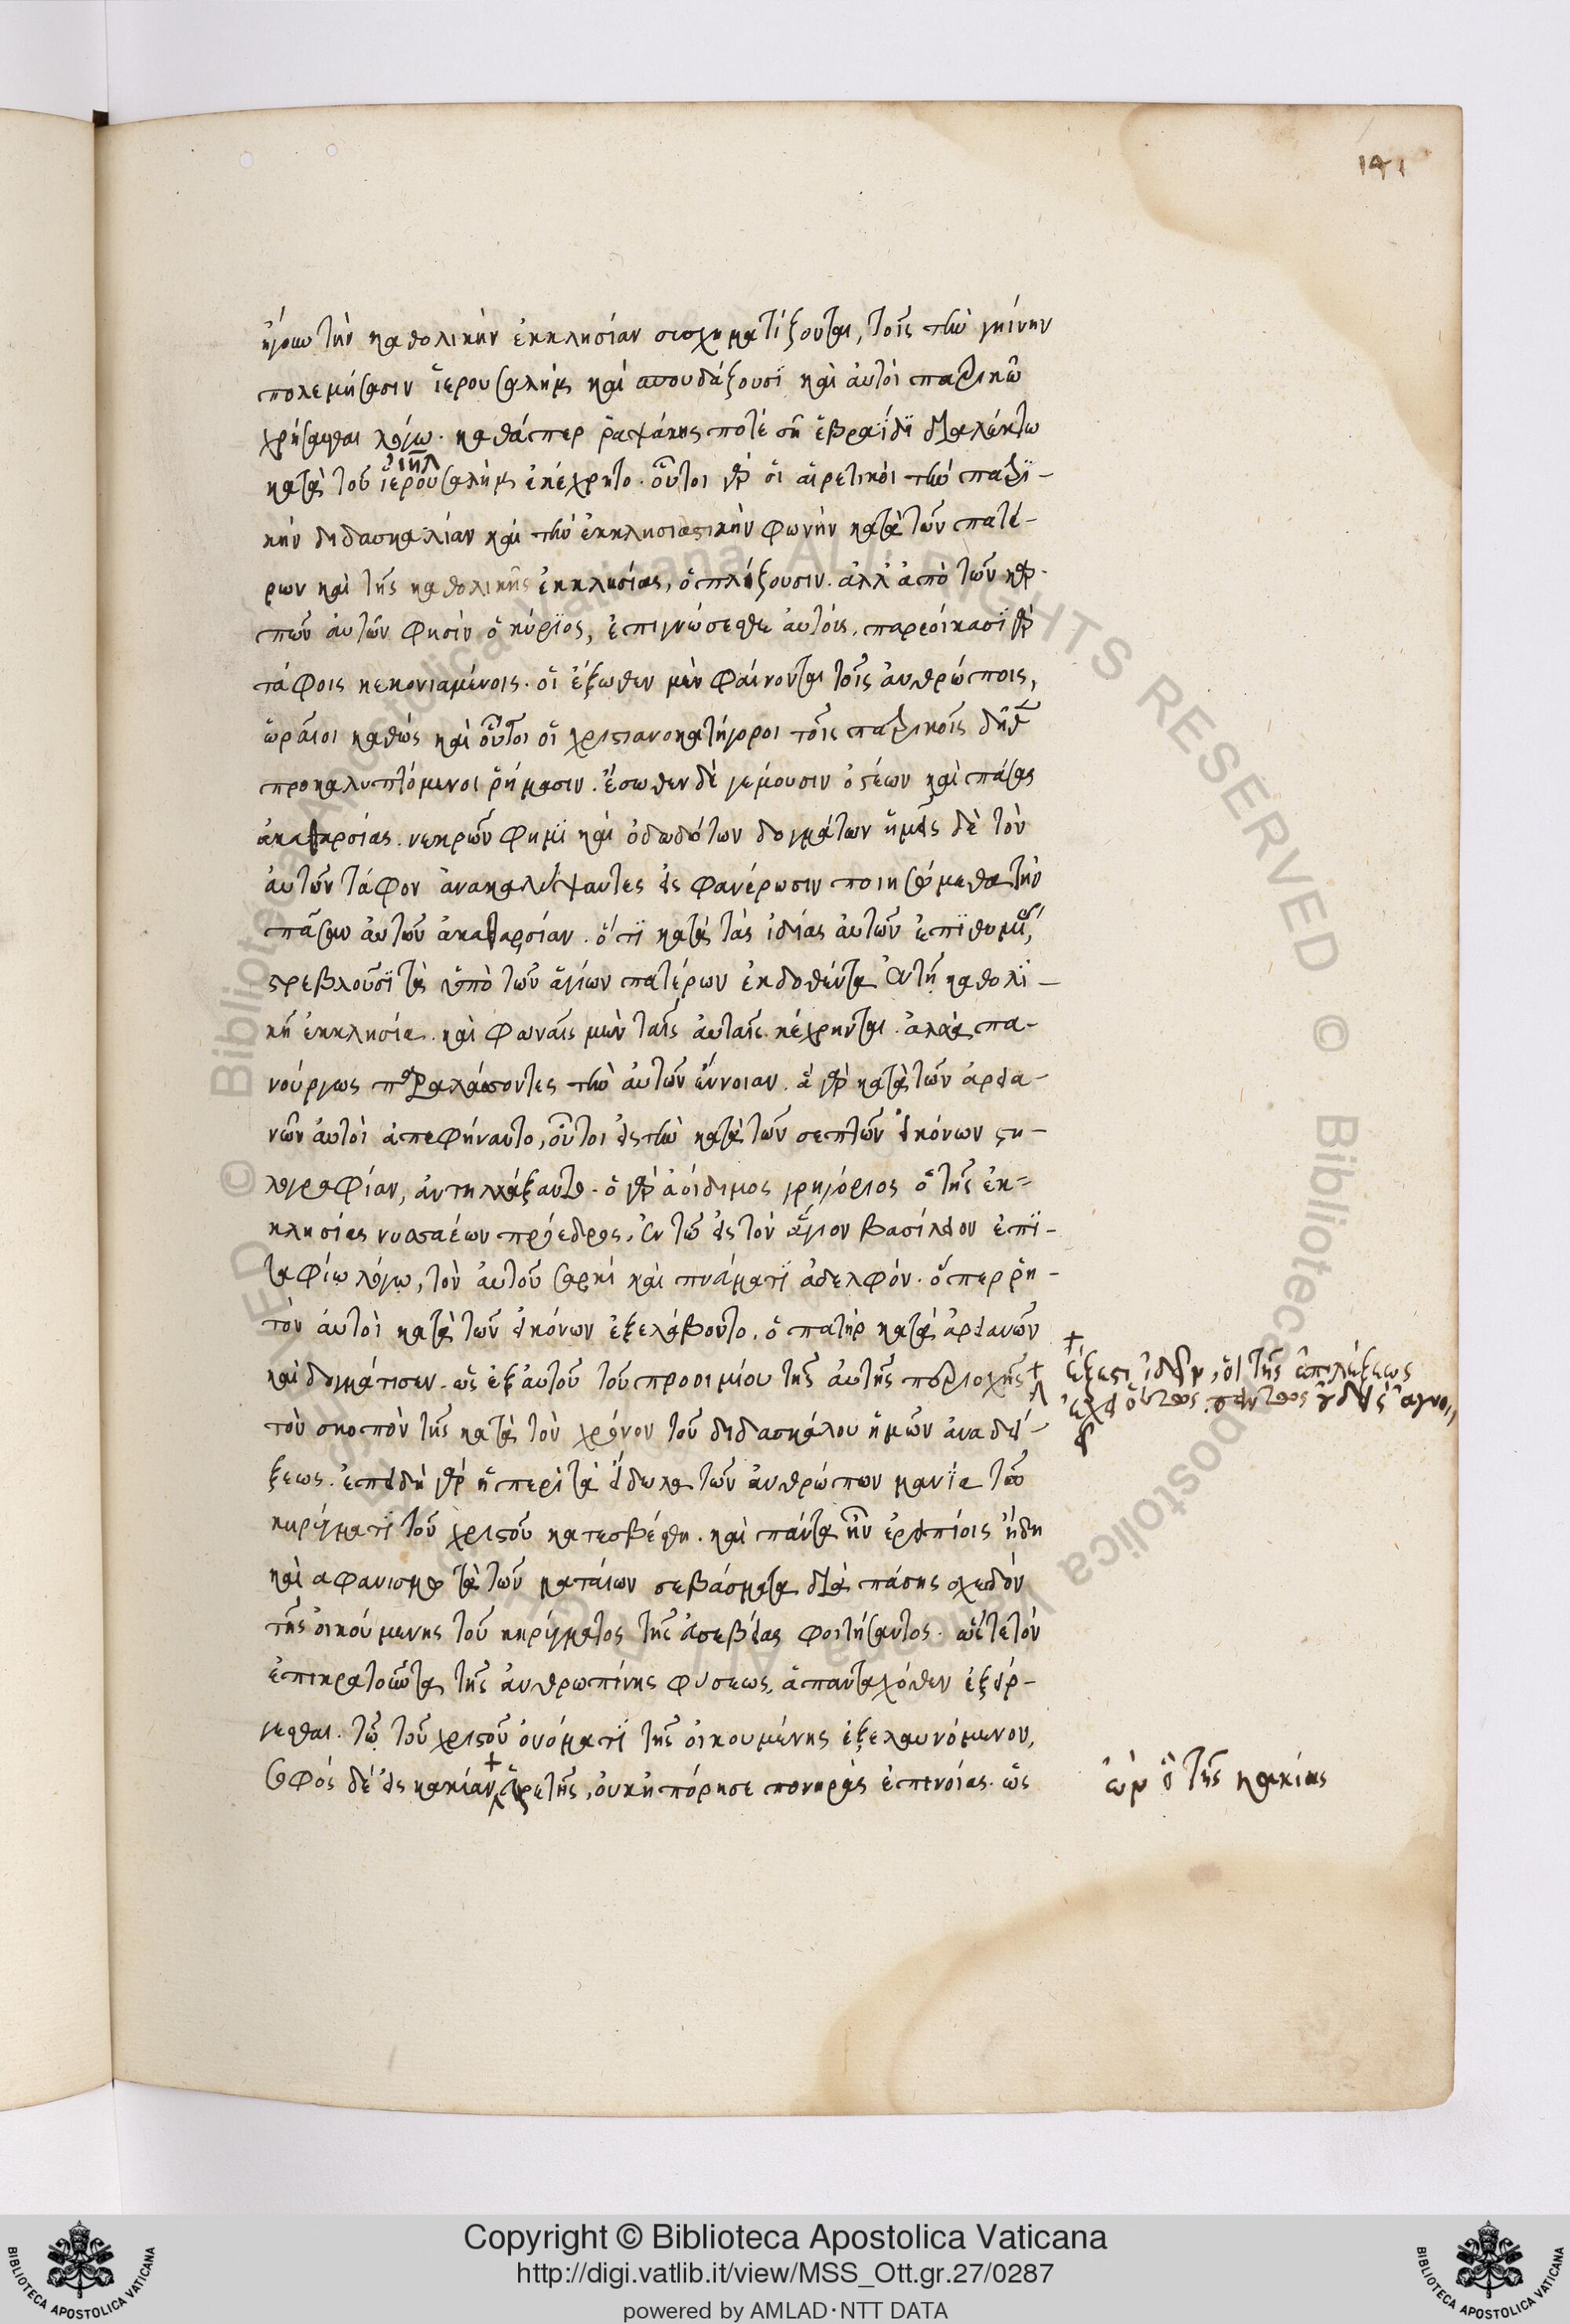 191
ἤγουν τὴν καθολικὴν ἐκκλησίαν συσχηματίζονται, τοῖς τὴν γηίνην
πολεμήσασιν ἱερουσαλήμ καὶ σπουδάζουσϊ καὶ αὐτοὶ πατρικῶ
χρήσασθαι λόγω. καθάπερ ῥαψάκης ποτέ τῆ ἑβραΐδϊ διαλέκτω
ιηλ
κατὰ τοῦ ἱερουσαλὴμ ἐκέχρητο. οὗτοι γὰρ οἱ αἱρετικοὶ τὴν πατρϊ-
κὴν διδασκαλίαν καὶ τὴν ἐκκλησιαστικὴν φωνὴν κατὰ τῶν πατέ-
ρων καὶ τῆς καθολικῆς ἐκκλησίας, ὁπλίζουσιν. ἀλλ' ἀπὸ τῶν καρ-
πῶν αὐτῶν φησὶν ὁ κύρϊος, ἐπιγνώσεσθε αὐτούς. παρεοίκασϊ γὰρ
τάφοις κεκονιαμένοις. οἳ ἔξωθεν μὲν φαίνονται τοῖς ἀνθρώποις,
ὡραῖοι καθὼς καὶ οὗτοι οἱ χριστιανοκατήγοροι τοῖς πατρικοῖς δῆθεν
προκαλυπτόμενοι ῥήμασιν. ἔσωθεν δὲ γέμουσιν ὀστέων καὶ πάσης
ἀκαθαρσίας. νεκρῶν φημϊ καὶ ὀδωδότων δογμάτων ἡμεῖς δὲ τὸν
αὐτῶν τάφον ἀνακαλύψαντες εἰς φανέρωσιν ποιησόμεθα τὴν
πᾶσαν αὐτῶν ἀκαθαρσίαν. ὅτϊ κατὰ τὰς ἰδίας αὐτῶν ἐπϊθυμίας,
στρεβλοῦσϊ τὰ ὑπὸ τῶν ἁγίων πατέρων ἐκδοθέντα ἐν τῆ καθολϊ-
κῆ ἐκκλησία. καὶ φωναῖς μὲν ταῖς αὐταῖς κέχρηνται. ἀλλὰ πα-
νούργως παραλλάττοντες τὴν αὐτῶν ἔννοιαν. ἃ γὰρ κατὰ τῶν ἀρεια-
νῶν αὐτοὶ ἀπεφήναντο, οὗτοι εἰς τὴν κατὰ τῶν σεπτῶν εἰκόνων στη-
λογραφίαν, ἀντηλλάξαντο. ὁ γὰρ ἀοίδιμος γρηγόριος ὁ τῆς ἐκ-
κλησίας νυσσαέων πρόεδρος, ἐν τῶ εἰς τὸν ἅγιον βασίλειον ἐπϊ-
ταφίῳ λόγω, τὸν αὐτοῦ σαρκὶ καὶ πνεύματϊ ἀδελφόν. ὅπερ ῥη-
τὸν αὐτοὶ κατὰ τῶν εἰκόνων ἐξελάβοντο. ὁ πατὴρ κατὰ ἀρειανῶν
καὶ δογμάτισεν. ὡς ἐξ αὐτοῦ τοῦ προοιμίου τῆς αὐτῆς περιοχῆς
ἔξεστι ἰδεῖν,
ἔχει οὕτως.
τὸν σκοπὸν τῆς κατὰ τὸν χρόνον τοῦ διδασκάλου ἡμῶν ἀναδεί-
ξεως. ἐπειδὴ γὰρ ἡ περὶ τὰ εἴδωλα τῶν ἀνθρώπων μανία τῶ
κηρύγματϊ τοῦ χριστοῦ κατεσβέσθη. καὶ πάντα ἦν ἐρειπίοις ἤδη
καὶ αφανισμῶ τὰ τῶν ματαίων σεβάσματα διὰ πάσης σχεδὸν
τῆς οἰκούμενης τοῦ κηρύγματος τῆς εὐσεβείας φοιτήσαντος. ὥστε τὸν
ἐπικρατοῦντα τῆς ἀνθρωπίνης φυσεως, ἁπανταχόθεν ἐξείρ-
γεσθαι. τῶ τοῦ χριστοῦ ὀνόματϊ τῆς οἰκουμένης ἐξελαυνόμενον,
σοφός δὲ εἰς κακίαν εὑρετὴς, οὐκ ἠπόρησε πονηρᾶς ἐπινοίας. ὡς
ὢν ὁ τῆς κακίας
Copyright © Biblioteca Apostolica Vaticana
http://digi.vatlib.it/view/MSS_Ott.gr.27/0287
powered by AMLAD·NTT DATA
BIBLIOTECA APOSTOLICA VATICANA
BIBLIOTECA APOSTOLICA VATICANA